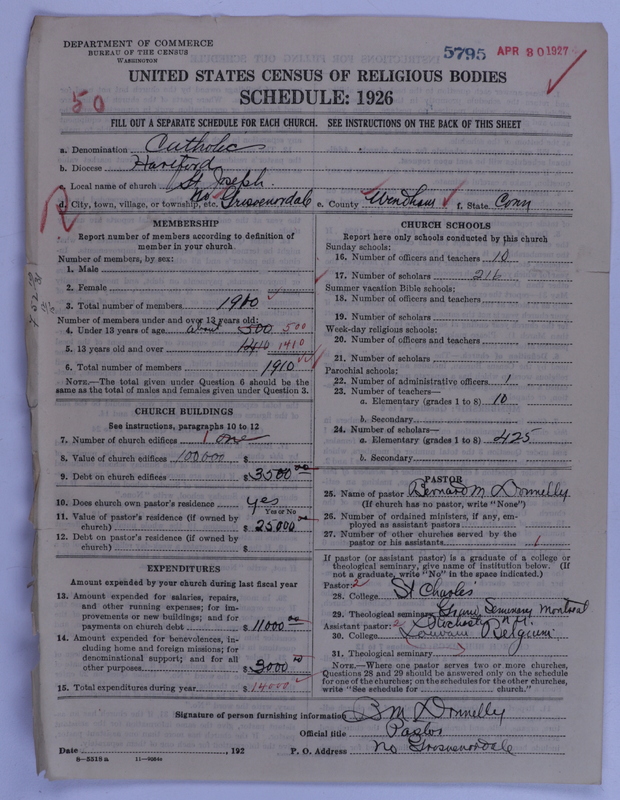 DEPARTMENT OF COMMERCE
BUREAU OF THE CENSUS
WASHINGTON
5795 APR 30 1927
UNITED STATES CENSUS OF RELIGIOUS BODIES
SCHEDULE: 1926
50
FILL OUT A SEPARATE SCHEDULE FOR EACH CHURCH. SEE INSTRUCTIONS ON THE BACK OF THIS SHEET
a. Denomination Catholic
b. Diocese Hartford
c. Local name of church St Joseph.
d. City, town, village, or township, etc. No Grosvenordale e. County Windham f. State Conn
MEMBERSHIP
Report number of members according to definition of
member in your church.
Number of members, by sex:
1. Male
2. Female
3. Total number of members 1910
Number of members under and over 13 years old:
4. Under 13 years of age about 500 500
5. 13 years old and over 1410 1410
6. Total number of members 1910
NOTE.—The total given under Question 6 should be the
same as the total of males and females given under Question 3.
CHURCH BUILDINGS
See instructions, paragraphs 10 to 12
7. Number of church edifices 1 one
8. Value of church edifices 100000 $
9. Debt on church edifices $ 3500 00
10. Does church own pastor's residence? yes
Yes or No
11. Value of pastor's residence (if owned by
church) $ 25000
12. Debt on pastor's residence (if owned by
church) $
EXPENDITURES
Amount expended by your church during last fiscal year
13. Amount expended for salaries, repairs,
and other running expenses; for im-
provements or new buildings; and for
payments on church debt $ 11000 00
14. Amount expended for benevolences, in-
cluding home and foreign missions; for
denominational support; and for all
other purposes $ 3000 00
15. Total expenditures during year $ 14000
CHURCH SCHOOLS
Report here only schools conducted by this church
Sunday schools:
16. Number of officers and teachers 10
17. Number of scholars 216
Summer vacation Bible schools:
18. Number of officers and teachers
19. Number of scholars
Week-day religious schools:
20. Number of officers and teachers
21. Number of scholars
Parochial schools:
22. Number of administrative officers 1
23. Number of teachers—
a. Elementary (grades 1 to 8) 10
b. Secondary
24. Number of scholars—
a. Elementary (grades 1 to 8) 425
b. Secondary
PASTOR
25. Name of pastor Bernard M. Donnelly
(If church has no pastor, write "None")
26. Number of ordained ministers, if any, em-
ployed as assistant pastors
27. Number of other churches served by the
pastor or his assistants 1
If pastor (or assistant pastor) is a graduate of a college or
theological seminary, give name of institution below. (If
not a graduate, write "No" in the space indicated.)
Pastor: 2
28. College St Charles
29. Theological seminary Grand Seminary Montreal
Assistant pastor: 2
30. College Louvain Belgium
31. Theological seminary
NOTE.—Where one pastor serves two or more churches,
Questions 28 and 29 should be answered only on the schedule
for one of the churches; on the schedules for the other churches,
write "See schedule for church."
Signature of person furnishing information B M Donnelly
Official title Pastor
Date , 192 P. O. Address No Grosvenordale
8—5519a 11—9054c